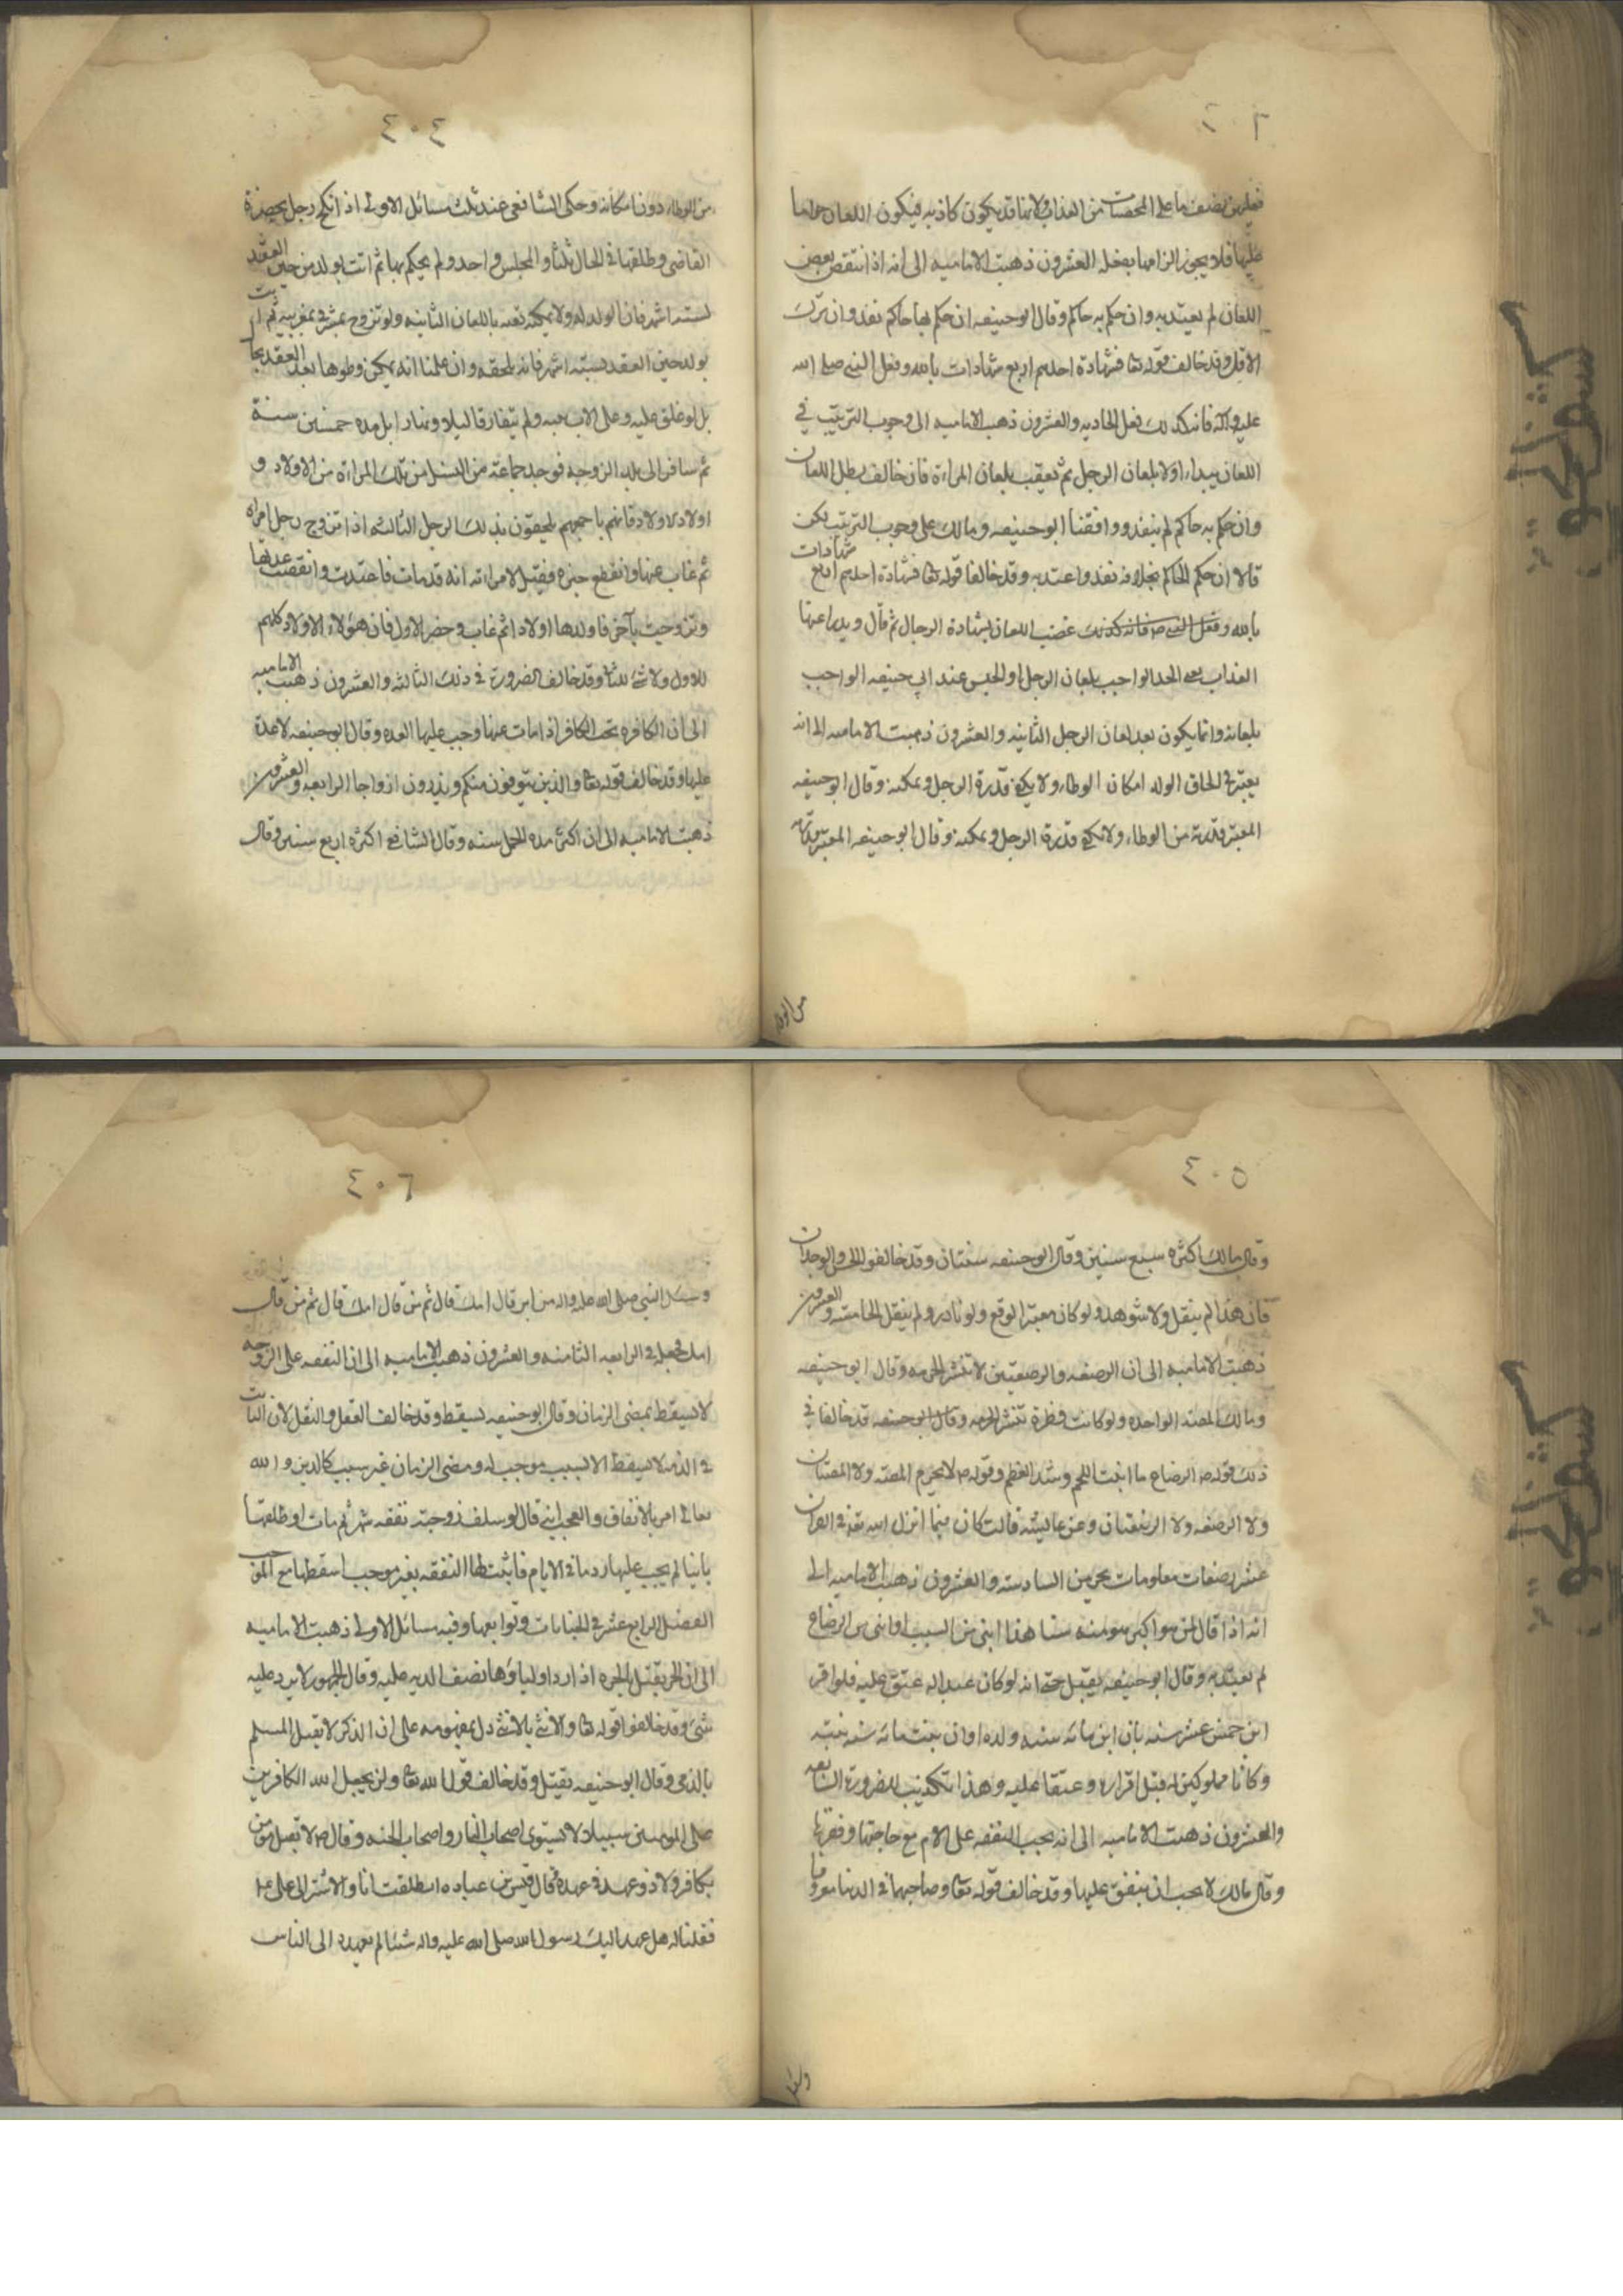 ٤٠٣
فعليهن نصف ما على المحصنات من العذاب ولانها قد يكون كاذبه فيكون اللعان حراما
عليها فلا يجوز الزامها بفعله العشرون ذهبت الاماميه الى انه اذا نقص بعض
اللعان لم يعتد به وان حكم به حاكم وقال ابو حنيفه ان حكم بها حاكم نفذ وان ترك
الاقل وقد خالف قوله تعا فشهادة احدهم اربع شهادات بالله وفعل النبي صلى الله
عليه وآله فانه كذلك فعل الحاديه والعشرون ذهبت الاماميه الى وجوب الترتيب في
اللعان يبداء اولا بلعان الرجل ثم تعقيب بلعان المراة فان خالف بطل اللعان
وان حكم به حاكم لم ينفذ ووافقنا ابو حنيفه ومالك على وجوب الترتيب لكن
قالا ان حكم الحاكم بخلافه نفذ واعتد به وقد خالفا قوله تعا فشهادة احدهم اربع شهادات
بالله وفعل النبي ص فانه كذلك اللعان بشهادة الرجال ثم قال ويدرا عنها
العذاب يعنى الحد الواجب بلعان الرجل او الحبس عند ابي حنيفه الواجب
بلعانه وانما يكون بعد لعان الرجل الثانيه والعشرون ذهبت الاماميه الى انه
يعتبر في الحاق الولد امكان الوطاء ولا يكفى قدرة الرجل وتمكنه وقال ابو حنيفه
المعتبر قدرته من الوطاء ولا يكفى قدرة الرجل وتمكنه وقال ابو حنيفه المعتبر قدرته
من الوطا
٤٠٤
من الوطاء دون امكانه وحكى الشافعى عنه ثلث مسائل الاولى اذا نكح رجل بحضرة
القاضى وطلقها في الحال ثلثا والمجلس واحد ولم يحكم بها ثم اتت بولد من حين العقد
لستة اشهر فان الولد له ولا يمكنه نفيه باللعان الثانيه ولو تزوج مشرقى بمغربيه ثم اتت
بولد حين العقد لستة اشهر فانه يلحقه وان علمنا انه يمكن وطوها بعد العقد بحال
بل لو غلق عليه وعلى الاب بعبه ولم يتفارقا ليلا ونهارا بل مده خمسين سنة
ثم سافر الى بلد الزوجه فوجد جماعة من النسل من تلك المراة من الاولاد و
اولاد الاولاد فانهم باجمعهم يلحقون بذلك الرجل الثالثه اذا تزوج رجل امراه
ثم غاب عنها وانقطع خبره فقيل لامراته انه قد مات فاعتدت وانقضت عدتها
وتزوجت بآخر فاولدها اولادا ثم غاب وحضر الاول فان هؤلاء الاولاد كلهم
للاول ولا شئ للثانى وقد خالف الضرورة في ذلك الثالثه والعشرون ذهبت الاماميه
الى ان الكافره تحت الكافر اذا مات عنها وجب عليها العده وقال ابو حنيفه لا عدة
عليها وقد خالف قوله تعا والذين يتوفون منكم ويذرون ازواجا الرابعه والعشرون
ذهبت الاماميه الى ان اكثر مده الحمل سنه وقال الشافعى اكثره اربع سنين وقال
٤٠٥
وقال مالك اكثره سبع سنين وقال ابو حنيفه سنتان وقد خالفوا الحس والوجدان
فان هذا لم ينقل ولا شوهد ولو كان معتبرا لوقع ولو نادرا ولم ينقل الخامسه والعشرون
ذهبت الاماميه الى ان الرضعه والرضعتين لا تنشر الحرمه وقال ابو حنيفه
ومالك المصة الواحده ولو كانت قطرة تنشر الحرمه وقال ابو حنيفه قد خالفا في
ذلك قوله ص الرضاع ما انبت اللحم وشد العظم وقوله ص لا يحرم المصة ولا المصتان
ولا الرضعه ولا الرضعتان وعن عايشه قالت كان فيما انزل الله تعا في القران
عشر رضعات معلومات يحرمن السادسه والعشرون ذهبت الاماميه الى
انه اذا قال لمن هو اكبر منه سنا هذا ابنى من النسب او ابنى من الرضاع
لم يعتد به وقال ابو حنيفه يقبل حتى انه لو كان عبدا له عتق عليه فلو اقر
ابن خمس عشر سنه بان ابن مائه سنه ولده او ان بنت مائه سنه بنته
وكانا مملوكين له قبل اقراره وعتقا عليه وهذا تكذيب للضرورة السابعه
والعشرون ذهبت الاماميه الى انه يجب النفقه على الام مع حاجتها وفقرها
وقال مالك لا يجب ان ينفق عليها وقد خالف قوله تعا وصاحبهما في الدنيا معروفا
وسئل
٤٠٦
وسئل النبي صلى الله عليه واله من ابر قال امك قال ثم من قال امك قال ثم من قال
امك فجعل في الرابعه الثامنه والعشرون ذهبت الاماميه الى ان النفقه على الزوجه
لا تسقط بمضى الزمان وقال ابو حنيفه تسقط وقد خالف العقل والنقل لان الثابت
في الذمه لا يسقط الا بسبب موجب له ومضى الزمان غير سبب كالدين والله
تعالى امر بالانفاق والعجب انه قال لو سلف زوجته نفقه شهر ثم مات او طلقها
باينا لم يجب عليها رد باقى الايام فاثبت لها النفقه بغير موجب اسقطها مع الموجب
الفصل الرابع عشر في الجنايات وتوابعها وفيه مسائل الاولى ذهبت الاماميه
الى ان الحر يقتل بالحره اذا رد اولياؤها نصف الديه عليه وقال الجمهور لا يرد عليه
شئ وقد خالفوا قوله تعا والانثى بالانثى دل بمفهومه على ان الذكر لا يقبل المسلم
بالذمى وقال ابو حنيفه يقتل وقد خالف قول الله تعا ولن يجعل الله الكافرين
على المومنين سبيلا ولا يستوى اصحاب النار واصحاب الجنه وقال ص لا يقتل مومن
بكافر ولا ذو عهد في عهده فقال قيس بن عباده انطلقت انا والاشتر الى على ع
فقلنا له هل عهد اليك رسول الله صلى الله عليه واله شيئا لم يعهده الى الناس